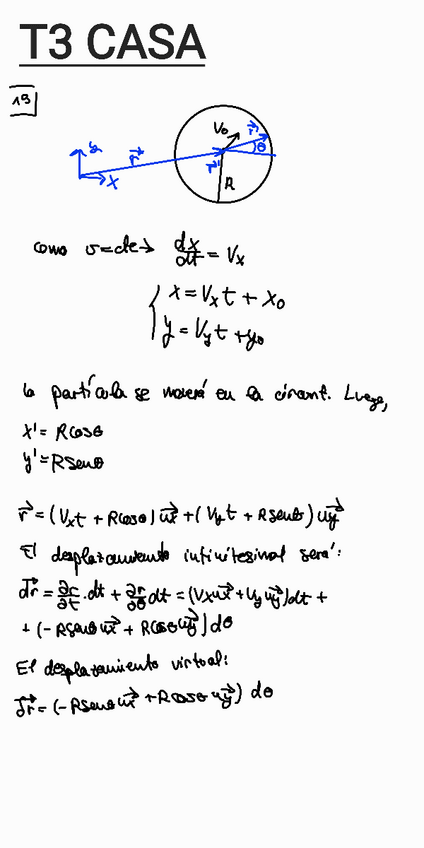 T3 CASA
19
y
x
r⃗
V₀
r⃗'
θ
r⃗'
R
como v=cte → dx/dt = Vx
{ x = Vx t + x₀
y = Vy t + y₀
la partícula se moverá en la circunf. Luego,
x' = Rcosθ
y' = Rsenθ
r⃗ = (Vx t + Rcosθ) u⃗x + (Vy t + Rsenθ) u⃗y
El desplazamiento infinitesimal será:
d⃗r = ∂r/∂t · dt + ∂r/∂θ dt = (Vx u⃗x + Vy u⃗y) dt +
+ (-Rsenθ u⃗x + Rcosθ u⃗y) dθ
El desplazamiento virtual:
δ⃗r = (-Rsenθ u⃗x + Rcosθ u⃗y) dθ